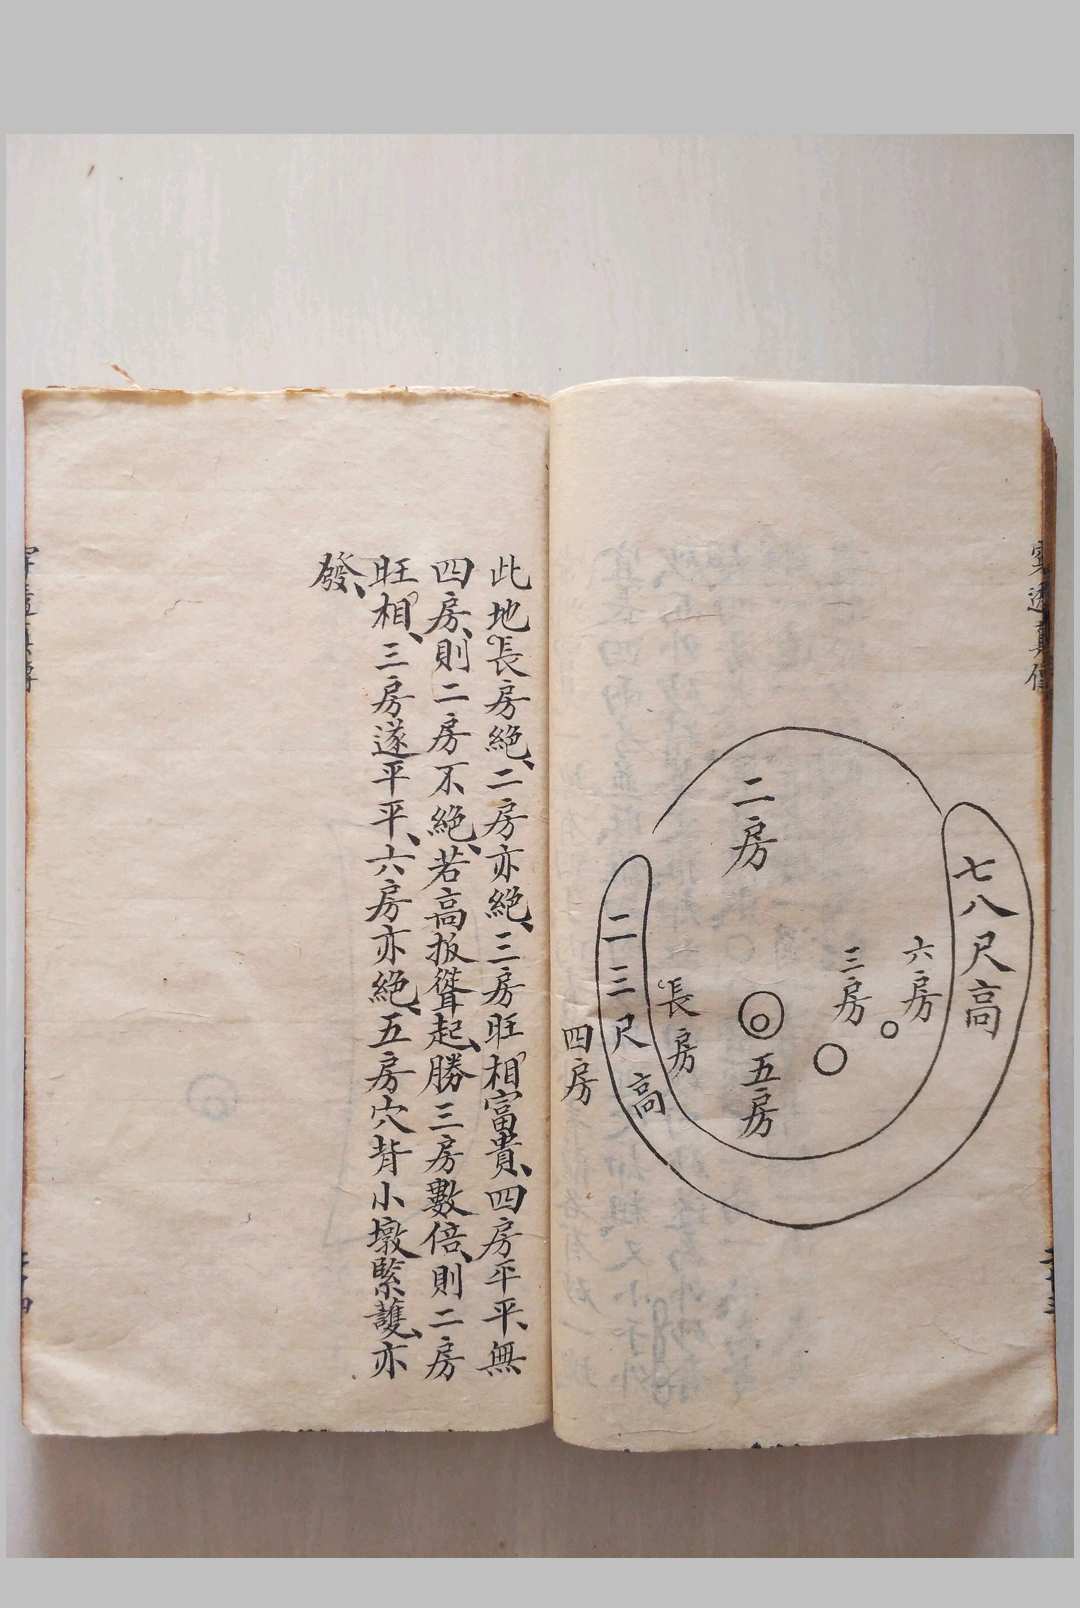 二房
七八尺高
六房
三房
五房
長房
二三尺高
四房
此地長房絕、二房亦絕、三房旺相富貴、四房平平、無
四房、則二房不絕、若高扳聳起、勝三房數倍、則二房
旺相、三房遂平平、六房亦絕、五房穴背小墩緊護、亦
發、